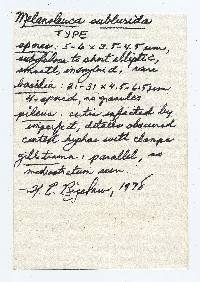 Melanoleuca sublurida
TYPE
spores: 5-6 x 3.5-4.5 µm,
subglobose to short elliptic,
smooth, inamyloid, rare
basidia: 21-31 x 4.5-6.5 µm
4-spored, no granules
pileus: entire infected by
imperfect, details obscured
context hyphae with clamps
gill trama: parallel, no
mediostratum seen.
- H E Bigelow, 1978